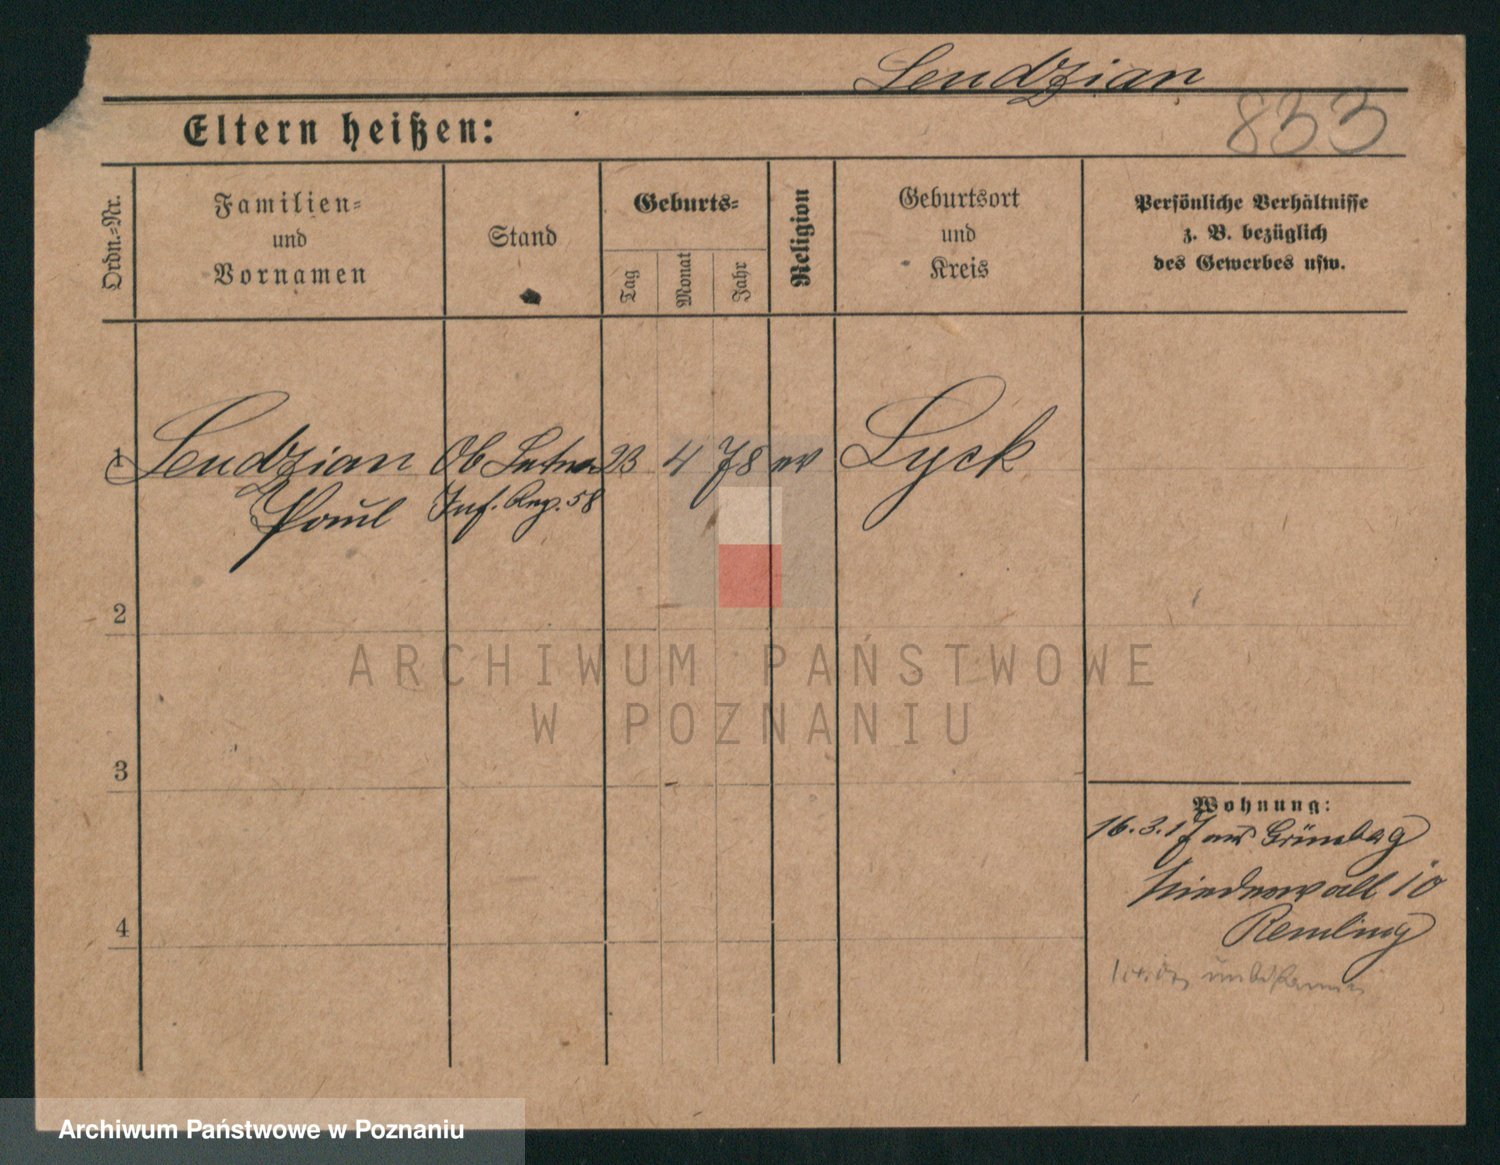 Lendzian
833
Eltern heißen:
Ordn.-Nr.
Familien-
und
Vornamen
Stand
Geburts-
Tag
Monat
Jahr
Religion
Geburtsort
und
Kreis
Persönliche Verhältnisse
z. B. bezüglich
des Gewerbes usw.
1 Lendzian Ob 23 4 78 ev Lyck
Paul Inf. Reg. 58
2
3
4
ARCHIWUM PAŃSTWOWE
W POZNANIU
Wohnung:
16.3.17 aus Grünberg
Niederwall 10
Remling
unbekannt
Archiwum Państwowe w Poznaniu